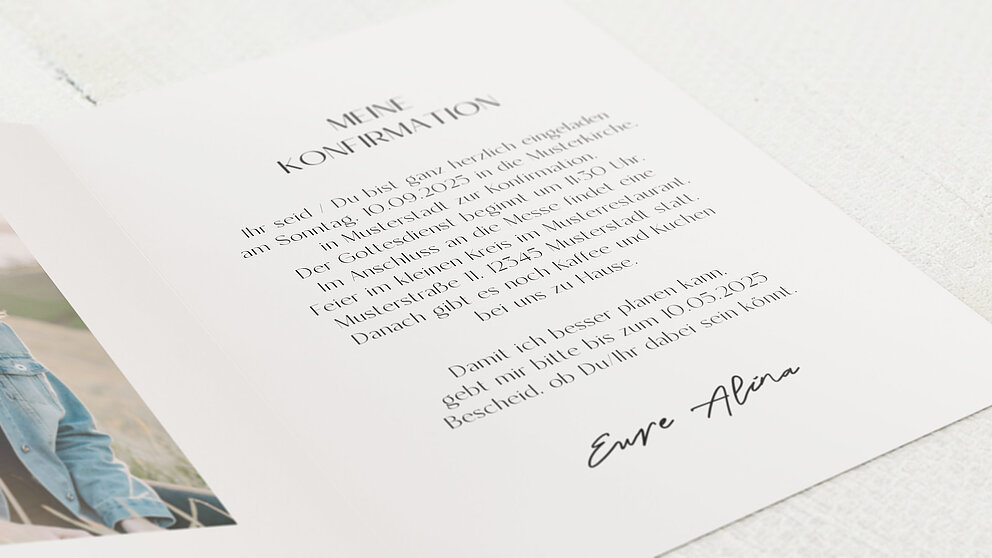 MEINE
KONFIRMATION
Ihr seid / Du bist ganz herzlich eingeladen
am Sonntag, 10.09.2025 in die Musterkirche.
in Musterstadt zur Konfirmation.
Der Gottesdienst beginnt um 11:30 Uhr.
Im Anschluss an die Messe findet eine
Feier im kleinen Kreis im Musterrestaurant,
Musterstraße 11, 12345 Musterstadt statt.
Danach gibt es noch Kaffee und Kuchen
bei uns zu Hause.
Damit ich besser planen kann,
gebt mir bitte bis zum 10.05.2025
Bescheid, ob Du/Ihr dabei sein könnt.
Eure Alina